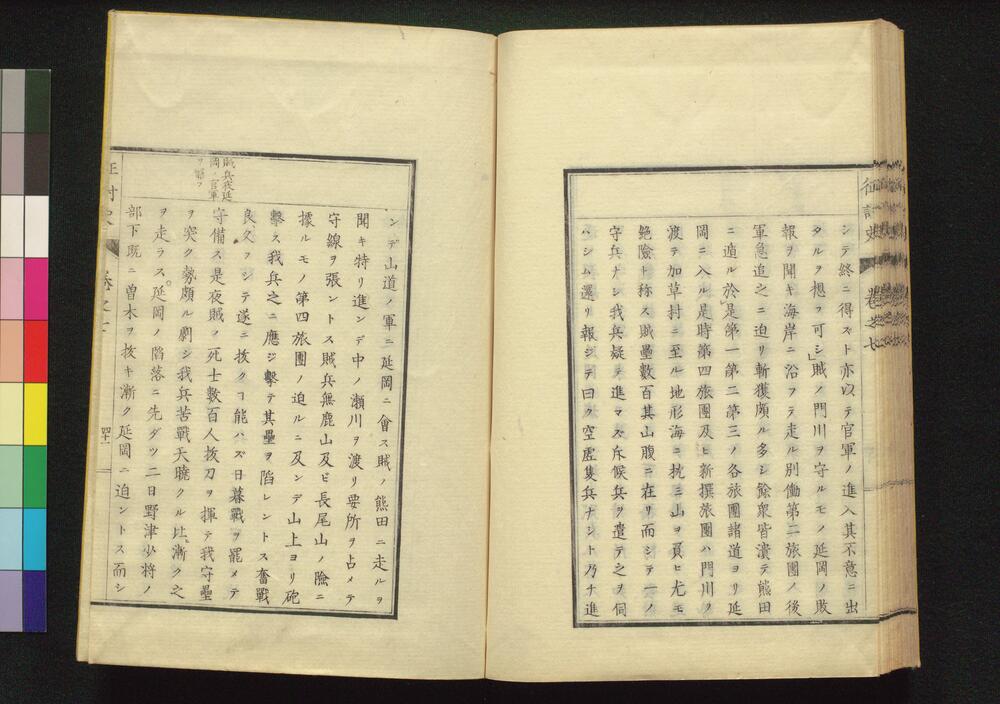 征討史
卷之七
シテ終ニ得ズト亦以テ官軍ノ進入其不意ニ出
タルヲ想フ可シ」賊ノ門川ヲ守ルモノ延岡ノ敗
報ヲ聞キ海岸ニ沿フテ走ル別働第二旅團ノ後
軍急追之ニ迫リ斬獲頗ル多シ餘衆皆潰テ熊田
ニ遁ル於是第一第二第三ノ各旅團諸道ヨリ延
岡ニ入ル是時第四旅團及ヒ新撰旅團ハ門川ヲ
渡テ加草村ニ至ル地形海ニ枕ミ山ヲ負ヒ尤モ
絶險ト称ス賊壘數百其山腹ニ在リ而シテ一ノ
守兵ナシ我兵疑テ進マズ斥候兵ヲ遣テ之ヲ伺
ハシム還リ報ジテ曰ク空虚隻兵ナシト乃ナ進
ンデ山道ノ軍ニ延岡ニ會ス賊ノ熊田ニ走ルヲ
聞キ特リ進ンデ中ノ瀬川ヲ渡リ要所ヲ占メテ
守線ヲ張ントス賊兵無鹿山及ビ長尾山ノ險ニ
據ルモノ第四旅團ノ迫ルニ及ンデ山上ヨリ砲
擊ス我兵之ニ應ジ擊テ其壘ヲ陷レントス奮戰
良久フシテ遂ニ拔クヿ能ハズ日暮戰ヲ罷メテ
賊兵我延
岡ノ官軍
ヲ襲フ
守備ス是夜賊ノ死士數百人拔刀ヲ揮テ我守壘
ヲ突ク勢頗ル劇シ我兵苦戰天曉クル比漸ク之
ヲ走ラス延岡ノ陷落ニ先ダツ二日野津少将ノ
部下既ニ曽木ヲ拔キ漸ク延岡ニ迫ントス而シ
征討史
卷之七